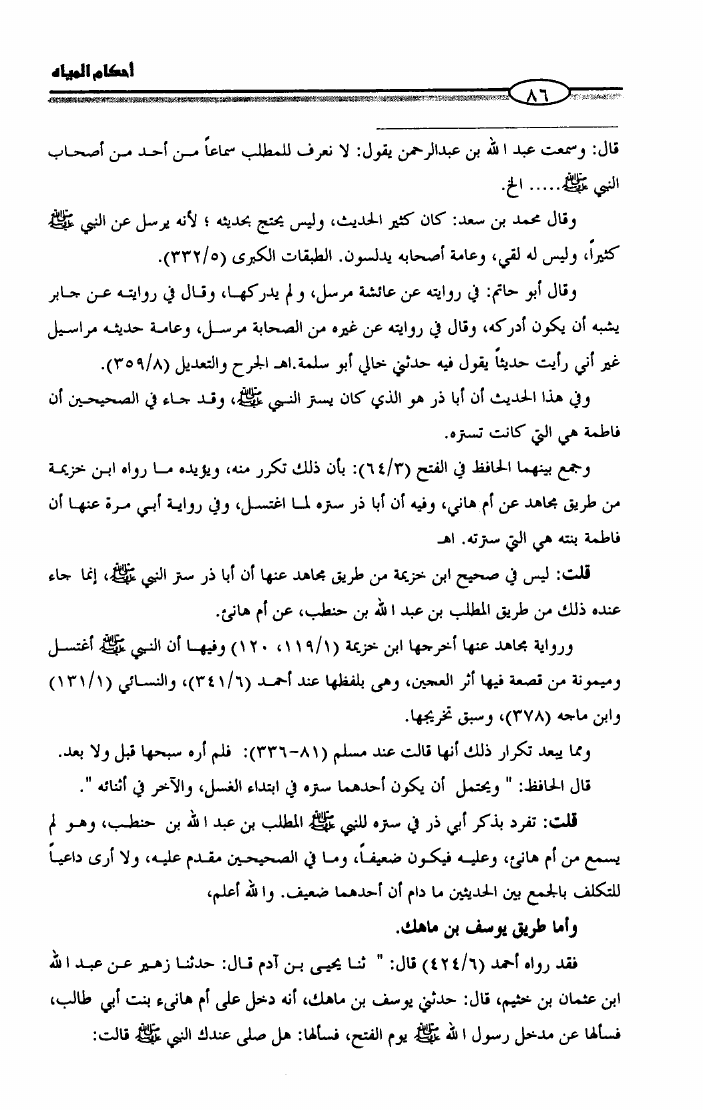 أحكام المياه
٨٦
قال: وسمعت عبد الله بن عبدالرحمن يقول: لا نعرف للمطلب سماعاً من أحد من أصحاب
النبي ﷺ..... الخ.
وقال محمد بن سعد: كان كثير الحديث، وليس يحتج بحديثه ؛ لأنه يرسل عن النبي ﷺ
كثيراً، وليس له لقي، وعامة أصحابه يدلسون. الطبقات الكبرى (٣٣٢/٥).
وقال أبو حاتم: في روايته عن عائشة مرسل، ولم يدركها، وقال في روايته عن جابر
يشبه أن يكون أدركه، وقال في روايته عن غيره من الصحابة مرسل، وعامة حديثه مراسيل
غير أني رأيت حديثاً يقول فيه حدثني خالي أبو سلمة.اهـ الجرح والتعديل (٣٥٩/٨).
وفي هذا الحديث أن أبا ذر هو الذي كان يستر النبي ﷺ، وقد جاء في الصحيحين أن
فاطمة هي التي كانت تستره.
وجمع بينهما الحافظ في الفتح (٦٤/٣): بأن ذلك تكرر منه، ويؤيده ما رواه ابن خزيمة
من طريق مجاهد عن أم هاني، وفيه أن أبا ذر ستره لما اغتسل، وفي رواية أبي مرة عنها أن
فاطمة بنته هي التي سترته. اهـ
قلت: ليس في صحيح ابن خزيمة من طريق مجاهد عنها أن أبا ذر ستر النبي ﷺ، إنما جاء
عنده ذلك من طريق المطلب بن عبد الله بن حنطب، عن أم هانئ.
ورواية مجاهد عنها أخرجها ابن خزيمة (١١٩/١، ١٢٠) وفيها أن النبي ﷺ أغتسل
وميمونة من قصعة فيها أثر العجين، وهى بلفظها عند أحمد (٣٤١/٦)، والنسائي (١٣١/١)
وابن ماجه (٣٧٨)، وسبق تخريجها.
ومما يبعد تكرار ذلك أنها قالت عند مسلم (٨١-٣٣٦): فلم أره سبحها قبل ولا بعد.
قال الحافظ: " ويحتمل أن يكون أحدهما ستره في ابتداء الغسل، والآخر في أثنائه ".
قلت: تفرد بذكر أبي ذر في ستره للنبي ﷺ المطلب بن عبد الله بن حنطب، وهو لم
يسمع من أم هانئ، وعليه فيكون ضعيفاً، وما في الصحيحين مقدم عليه، ولا أرى داعياً
للتكلف بالجمع بين الحديثين ما دام أن أحدهما ضعيف. والله أعلم،
وأما طريق يوسف بن ماهك.
فقد رواه أحمد (٤٢٤/٦) قال: " ثنا يحيى بن آدم قال: حدثنا زهير عن عبد الله
ابن عثمان بن خثيم، قال: حدثني يوسف بن ماهك، أنه دخل على أم هانىء بنت أبي طالب،
فسألها عن مدخل رسول الله ﷺ يوم الفتح، فسألها: هل صلى عندك النبي ﷺ قالت: